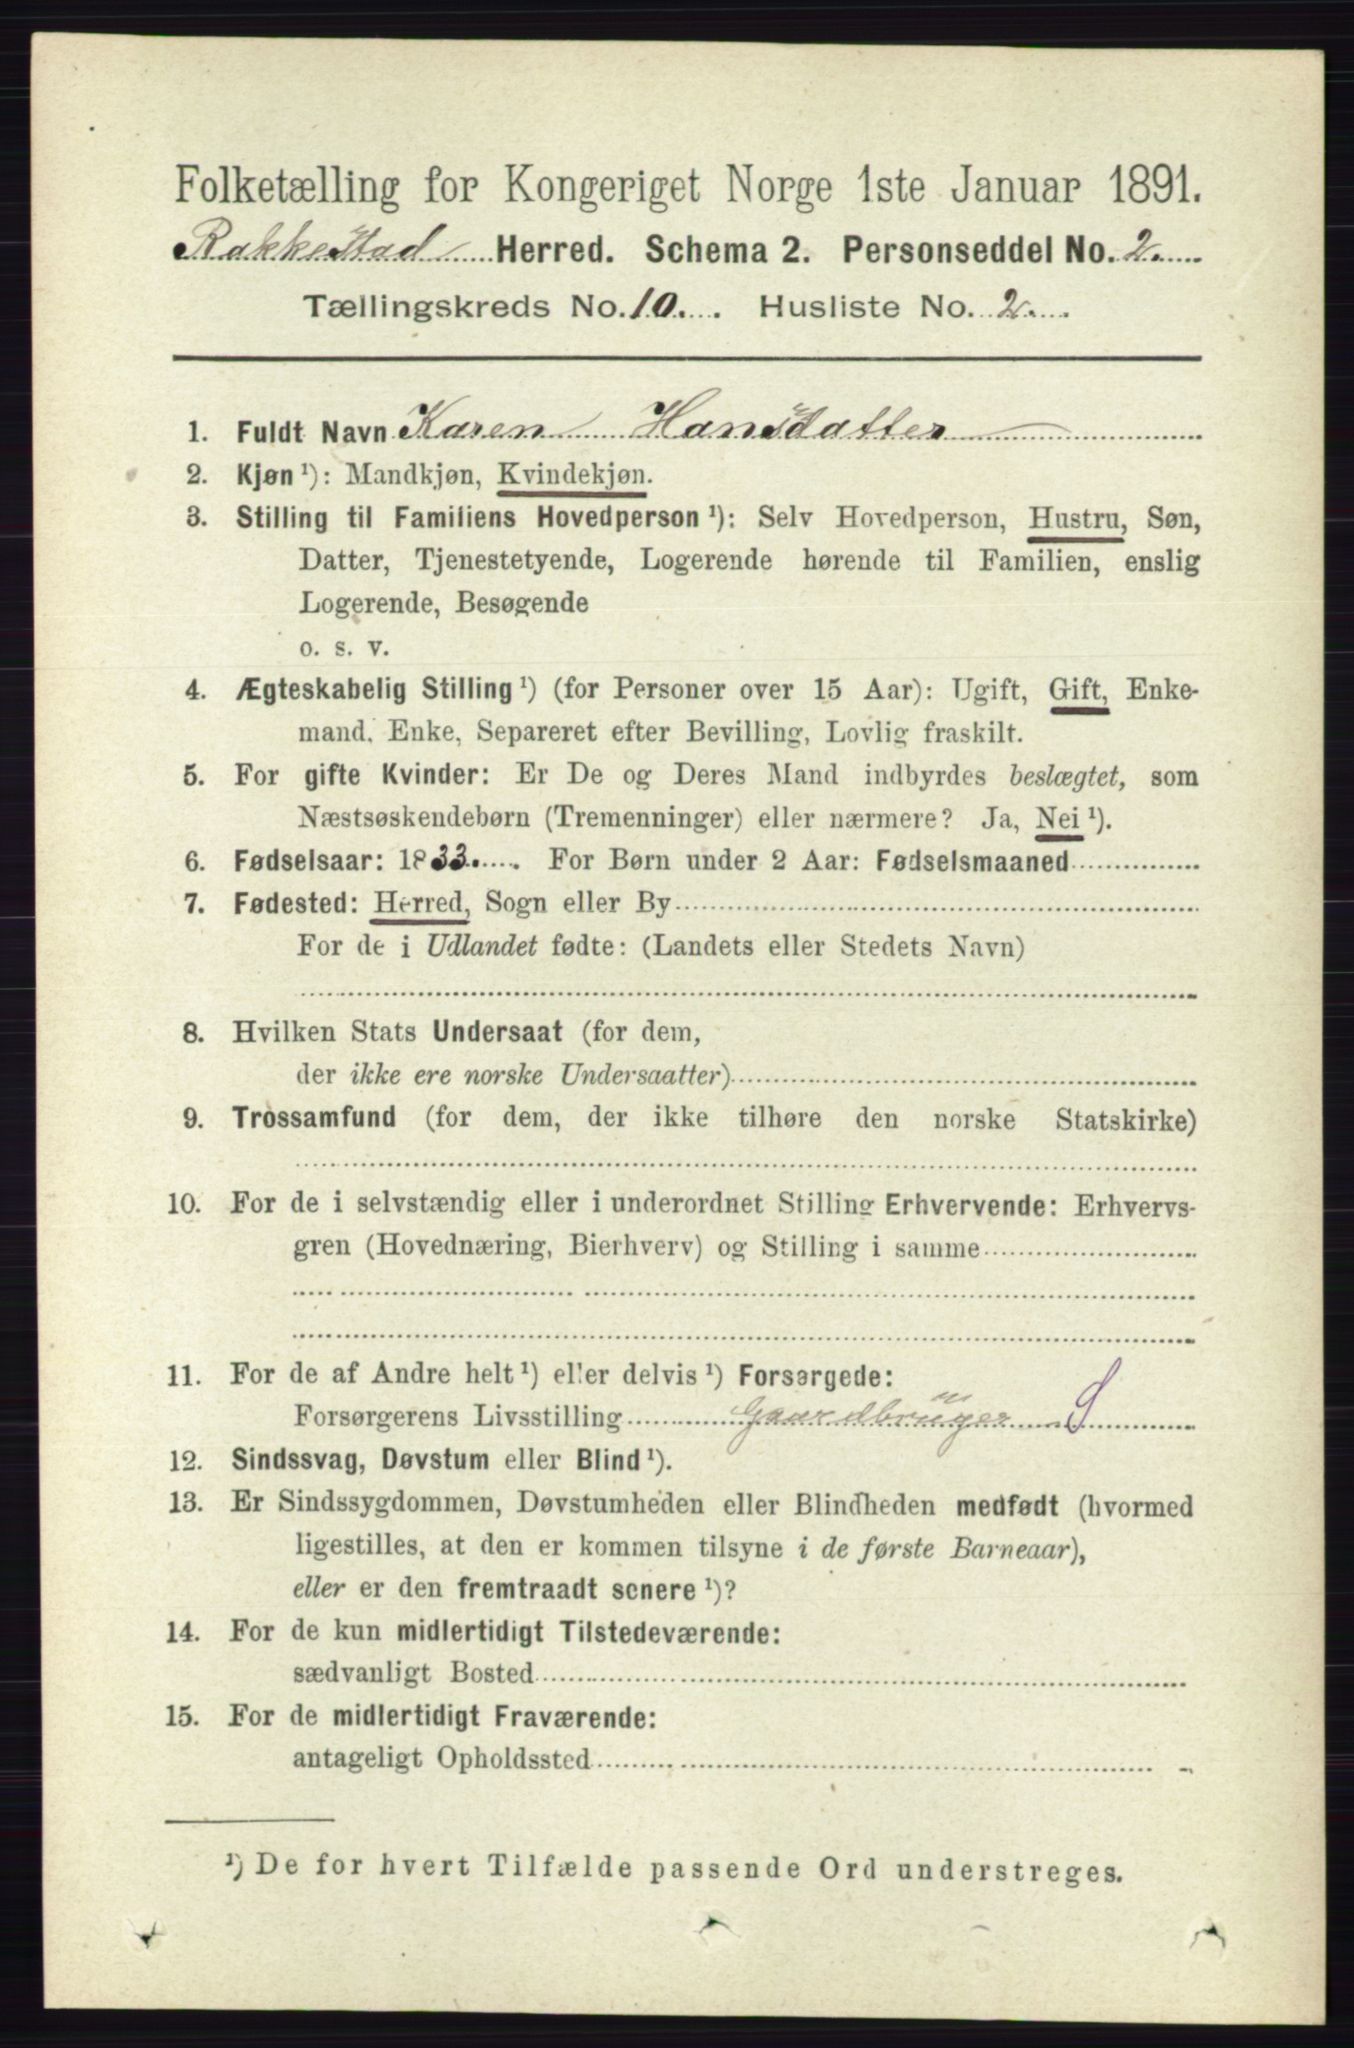 Folketælling for Kongeriget Norge 1ste Januar 1891.
Rakkestad Herred. Schema 2. Personseddel No. 2.
Tællingskreds No. 10. Husliste No. 2.
1. Fuldt Navn Karen Hansdatter
2. Kjøn ¹): Mandkjøn, Kvindekjøn.
3. Stilling til Familiens Hovedperson ¹): Selv Hovedperson, Hustru, Søn,
Datter, Tjenestetyende, Logerende hørende til Familien, enslig
Logerende, Besøgende
o. s. v.
4. Ægteskabelig Stilling ¹) (for Personer over 15 Aar): Ugift, Gift, Enke-
mand, Enke, Separeret efter Bevilling, Lovlig fraskilt.
5. For gifte Kvinder: Er De og Deres Mand indbyrdes beslægtet, som
Næstsøskendebørn (Tremenninger) eller nærmere? Ja, Nei ¹).
6. Fødselsaar: 1833. For Børn under 2 Aar: Fødselsmaaned
7. Fødested: Herred, Sogn eller By
For de i Udlandet fødte: (Landets eller Stedets Navn)
8. Hvilken Stats Undersaat (for dem,
der ikke ere norske Undersaatter)
9. Trossamfund (for dem, der ikke tilhøre den norske Statskirke)
10. For de i selvstændig eller i underordnet Stilling Erhvervende: Erhvervs-
gren (Hovednæring, Bierhverv) og Stilling i samme
11. For de af Andre helt ¹) eller delvis ¹) Forsørgede:
Forsørgerens Livsstilling Gaardbruger S
12. Sindssvag, Døvstum eller Blind ¹).
13. Er Sindssygdommen, Døvstumheden eller Blindheden medfødt (hvormed
ligestilles, at den er kommen tilsyne i de første Barneaar),
eller er den fremtraadt senere ¹)?
14. For de kun midlertidigt Tilstedeværende:
sædvanligt Bosted
15. For de midlertidigt Fraværende:
antageligt Opholdssted
¹) De for hvert Tilfælde passende Ord understreges.